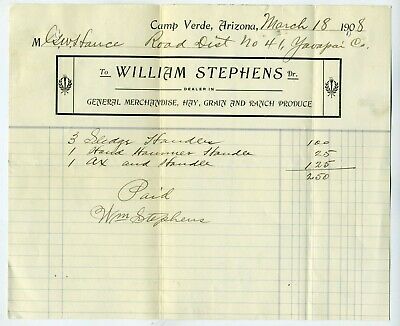 Camp Verde, Arizona, March 18 1908
M GW Hance Road Dist No 41, Yavapai Co.
To WILLIAM STEPHENS Dr.
DEALER IN
GENERAL MERCHANDISE, HAY, GRAIN AND RANCH PRODUCE
3 Sledge Handles 100
1 Hand Hammer Handle 25
1 Ax and Handle 125
250
Paid
Wm Stephens